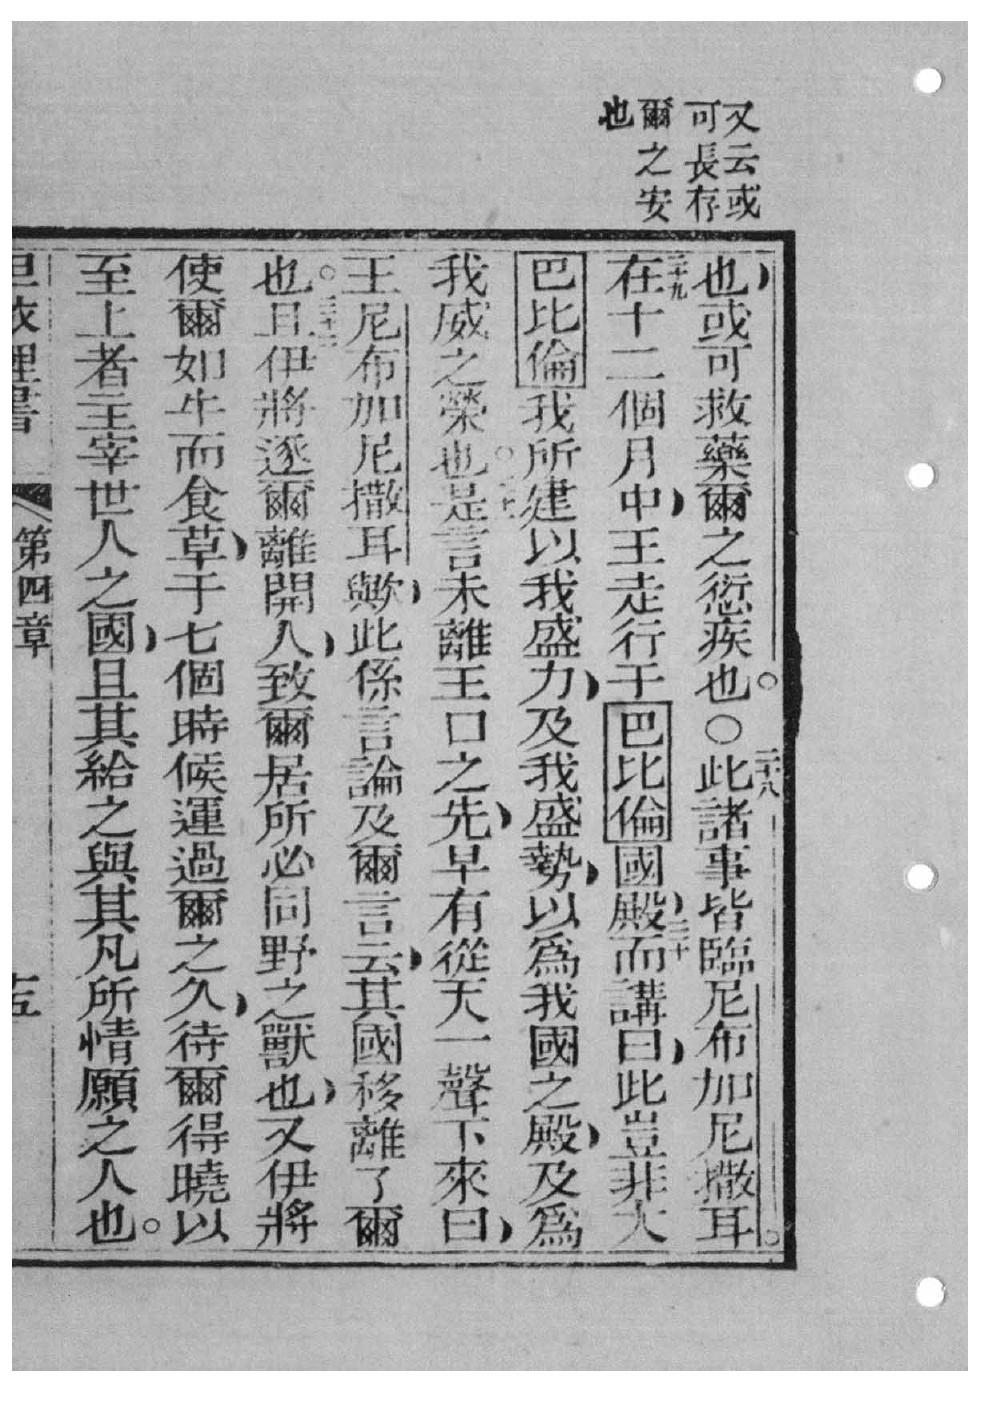 又云或
可長存
爾之安
也
也或可救藥爾之愆疾也。○二十八此諸事皆臨尼布加尼撒耳。
二十九在十二個月中王走行于巴比倫國殿三十而講曰此豈非大
巴比倫我所建以我盛力及我盛勢以爲我國之殿及爲
我威之榮也。是言未離王口之先早有從天一聲下來曰
王尼布加尼撒耳歟此係言論及爾言云其國移離了爾
也。且伊將逐爾離開人致爾居所必同野之獸也又伊將
使爾如牛而食草于七個時候運過爾之久待爾得曉以
至上者主宰世人之國且其給之與其凡所情願之人也。
第四章